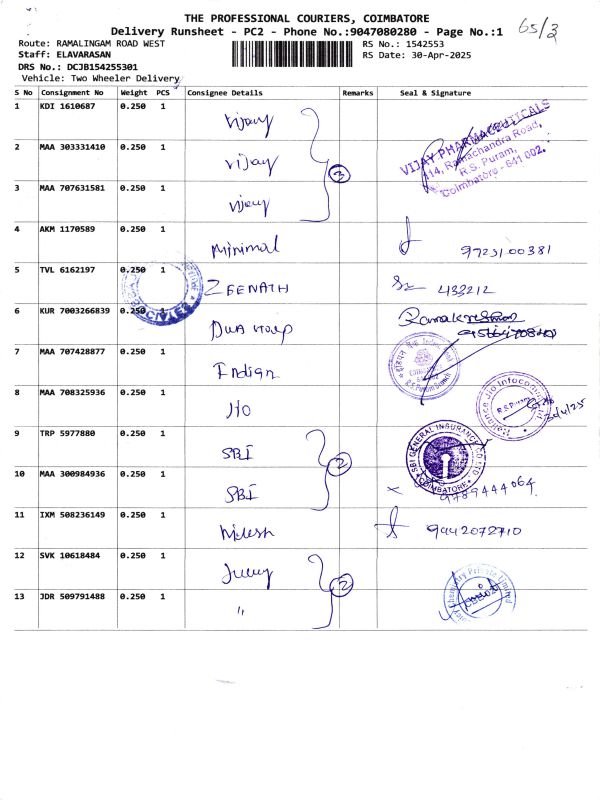 THE PROFESSIONAL COURIERS, COIMBATORE
Delivery Runsheet - PC2 - Phone No.:9047080280 - Page No.:1
65/3
Route: RAMALINGAM ROAD WEST
RS No.: 1542553
Staff: ELAVARASAN
RS Date: 30-Apr-2025
DRS No.: DCJB154255301
Vehicle: Two Wheeler Delivery
S No Consignment No Weight PCS Consignee Details Remarks Seal & Signature
1 KDI 1610687 0.250 1 Vijay
VIJAY PHARMACEUTICALS
114, Ramachandra Road,
R.S. Puram,
Coimbatore - 641 002.
2 MAA 303331410 0.250 1 Vijay
3
3 MAA 707631581 0.250 1 Vijay
4 AKM 1170589 0.250 1 Minimal 9723100381
5 TVL 6162197 0.250 1 ZEENATH 433212
6 KUR 7003266839 0.250 1
7 MAA 707428877 0.250 1 Indian
R.S. Puram Branch
8 MAA 708325936 0.250 1 JIO
Reliance Jio Infocomm Ltd
R.S. Puram
30/4/25
9 TRP 5977880 0.250 1 SBI
SBI GENERAL INSURANCE CO. LTD.
COIMBATORE
2
10 MAA 300984936 0.250 1 SBI
9789444064
11 IXM 508236149 0.250 1 Nilesh 9442072710
12 SVK 10618484 0.250 1
2
Chemistry Private Limited
13 JDR 509791488 0.250 1 "